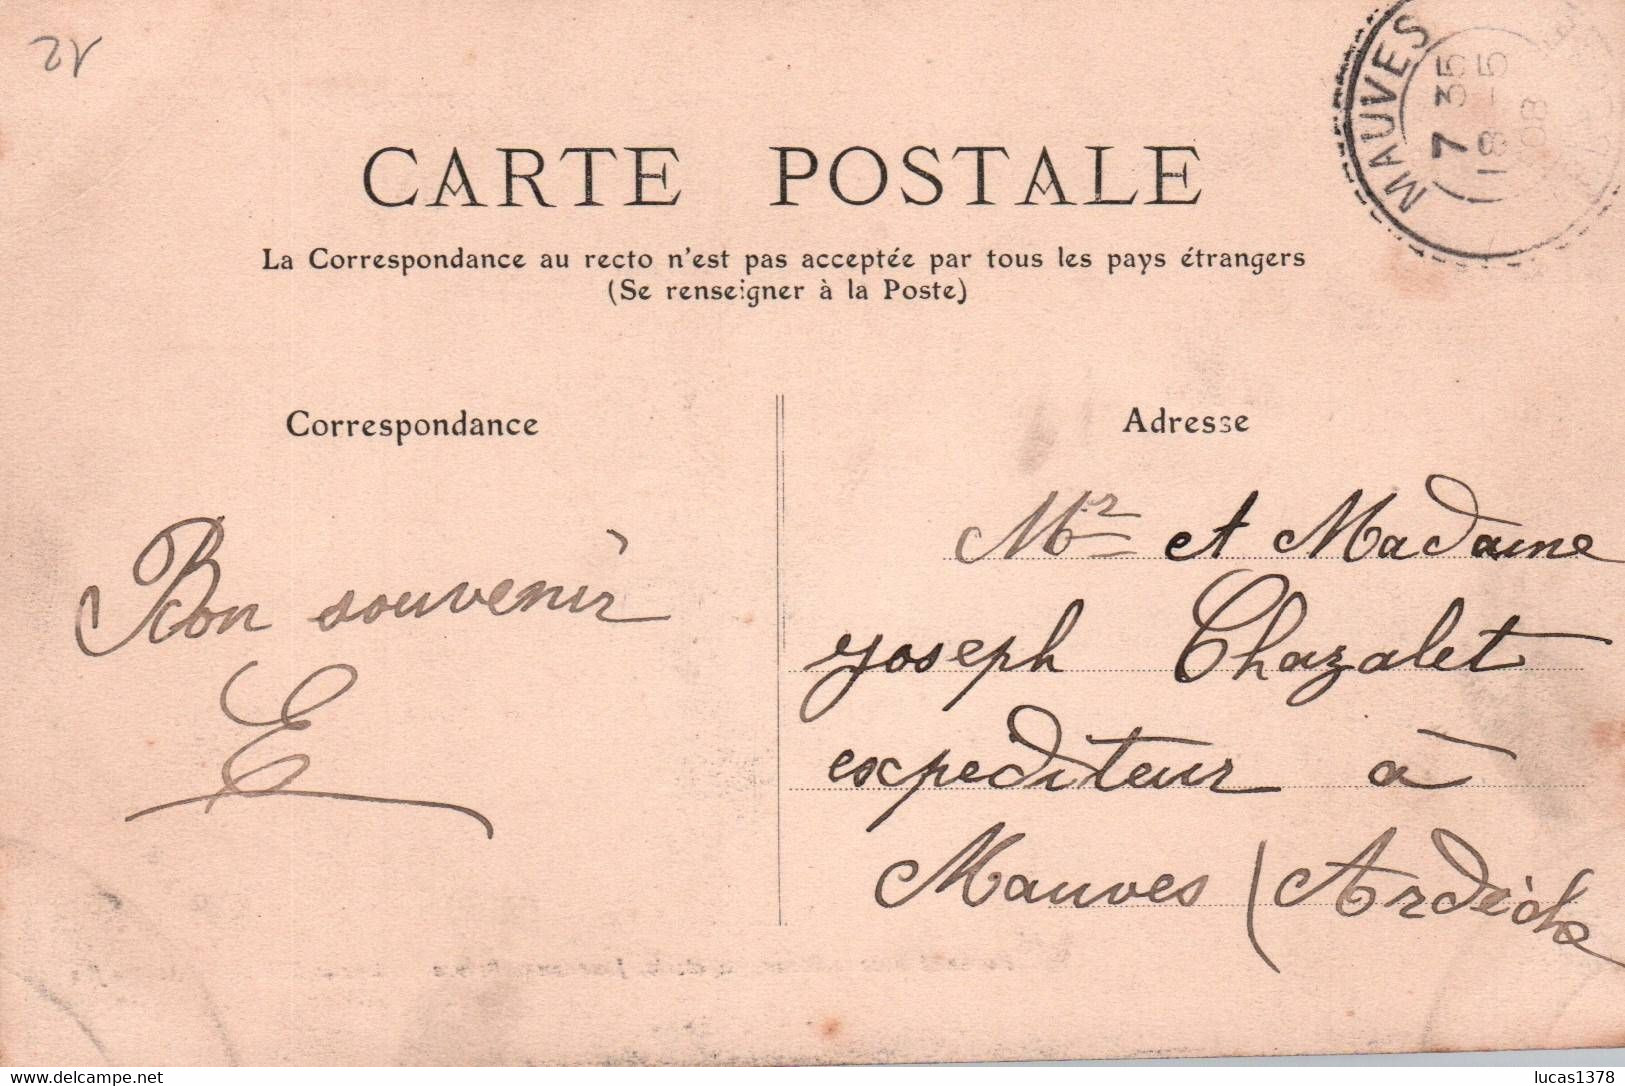 22
MAUVES
7 35
18 -5
08
CARTE POSTALE
La Correspondance au recto n'est pas acceptée par tous les pays étrangers
(Se renseigner à la Poste)
Correspondance
Adresse
Bon souvenir
E
Mr et Madame
Joseph Chazalet
expediteur à
Mauves (Ardèche
www.delcampe.net
lucas1378